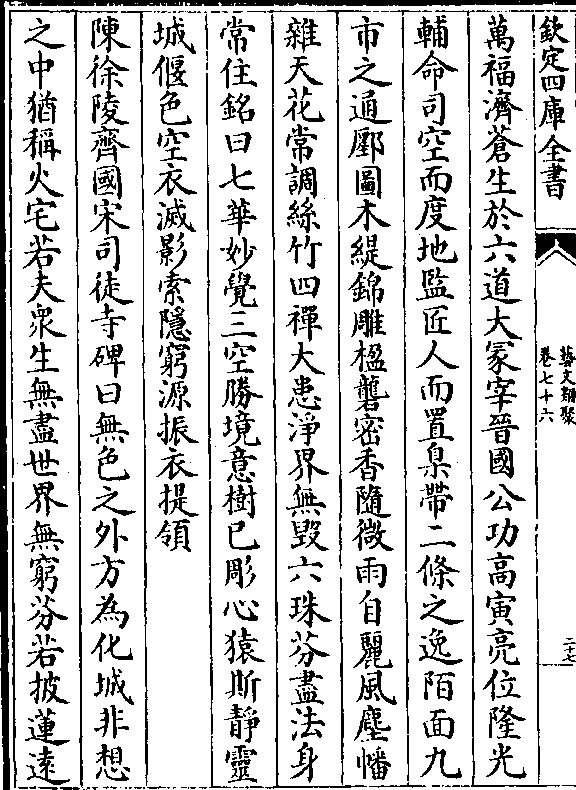 欽定四庫全書
藝文類聚
卷七十六
二十七
萬福濟蒼生於六道大冢宰晉國公功高寅亮位隆光
輔命司空而度地監匠人而置臬帶二條之逸陌面九
市之通鄽圖木緹錦雕楹礱密香隨微雨自麗風塵幡
雜天花常調絲竹四禪大患淨界無毀六珠芬盡法身
常住銘曰七華妙覺三空勝境意樹已彫心猿斯靜靈
城偃色空衣滅影索隱窮源振衣提領
陳徐陵齊國宋司徒寺碑曰無色之外方為化城非想
之中猶稱火宅若夫衆生無盡世界無窮芬若披蓮遠